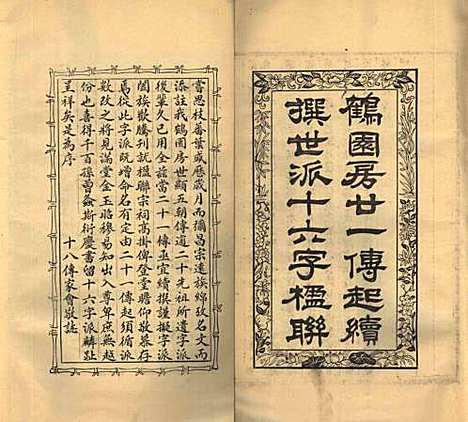 鶴園房廿一傳起續
撰世派十六字楹聯
嘗思枝番葉盛歷歲月而彌昌宗遠族綿玫名文而
添註我鶴園房世顯五朝傳通二十先祖所遺字派
後輩久已用全茲當二十一傳亟宜續撰謹擬字派
閤族歡騰刊就楹聯宗祠高掛俾登堂瞻仰敬慕存
為從此字派既增命名有定由二十一傳起須循此
數改之將見滿堂金玉昭穆易知出入尊卑庶無越
份也喜得千百孫曾螽斯衍慶書留十六字派麟趾
呈祥矣是為序
十八傳家會敬誌